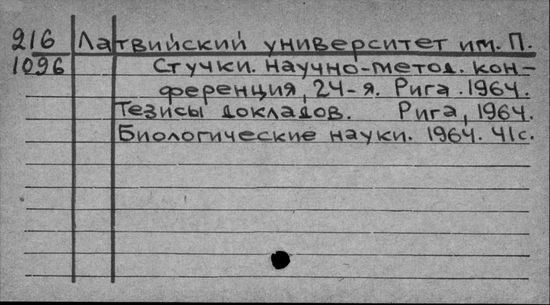 216 Латвийский университет им. П.
1096 Стучки. Научно-метод. кон-
ференция, 24-я. Рига. 1964.
Тезисы докладов. Рига, 1964.
Биологические науки. 1964. 41с.